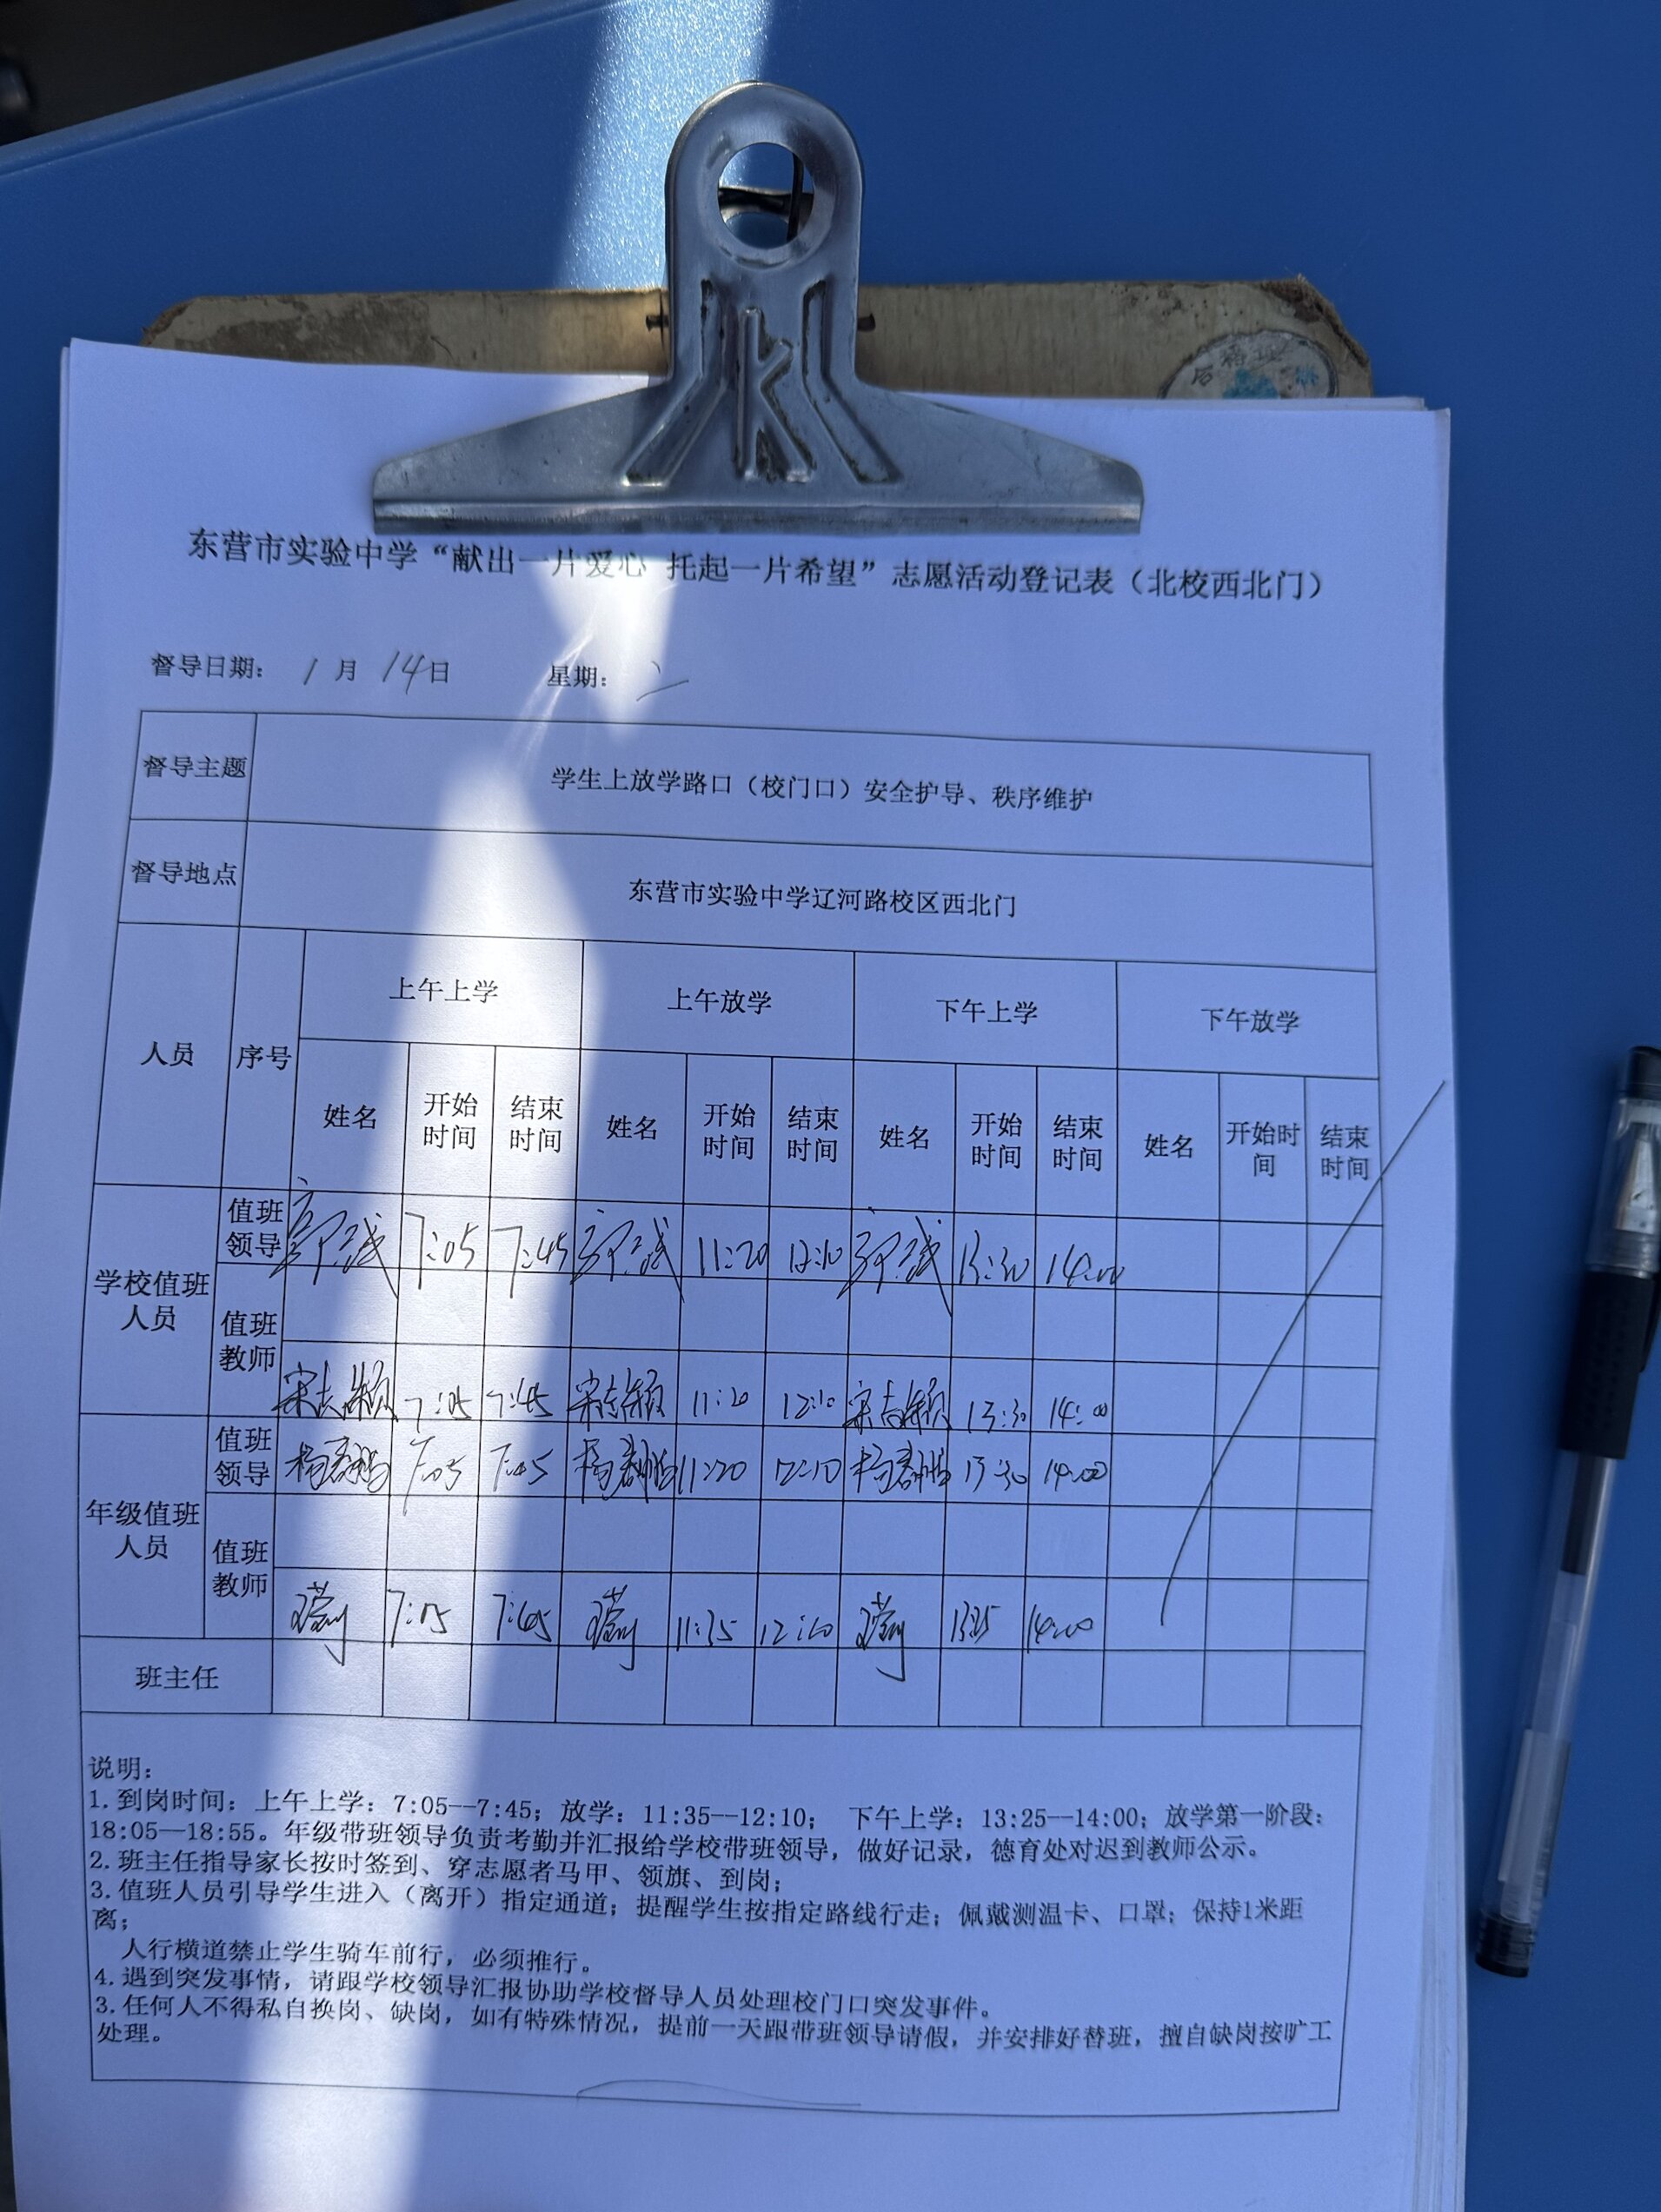 合格证
东营市实验中学“献出一片爱心 托起一片希望”志愿活动登记表（北校西北门）
督导日期： 1 月 14 日 星期： 二
督导主题 学生上放学路口（校门口）安全护导、秩序维护
督导地点 东营市实验中学辽河路校区西北门
人员 序号 上午上学 上午放学 下午上学 下午放学
姓名 开始时间 结束时间 姓名 开始时间 结束时间 姓名 开始时间 结束时间 姓名 开始时间 结束时间
学校值班人员 值班领导 7:05 7:45 11:20 12:10 13:30 14:00
值班教师
宋志颖 7:05 7:45 宋志颖 11:20 12:10 宋志颖 13:30 14:00
年级值班人员 值班领导 7:05 7:45 11:20 12:10 13:30 14:00
值班教师
7:05 7:45 11:35 12:10 13:25 14:00
班主任
说明：
1.到岗时间：上午上学：7:05--7:45；放学：11:35--12:10； 下午上学：13:25--14:00；放学第一阶段：
18:05--18:55。年级带班领导负责考勤并汇报给学校带班领导，做好记录，德育处对迟到教师公示。
2.班主任指导家长按时签到、穿志愿者马甲、领旗、到岗；
3.值班人员引导学生进入（离开）指定通道；提醒学生按指定路线行走；佩戴测温卡、口罩；保持1米距
离；
人行横道禁止学生骑车前行，必须推行。
4.遇到突发事情，请跟学校领导汇报协助学校督导人员处理校门口突发事件。
3.任何人不得私自换岗、缺岗，如有特殊情况，提前一天跟带班领导请假，并安排好替班，擅自缺岗按旷工
处理。